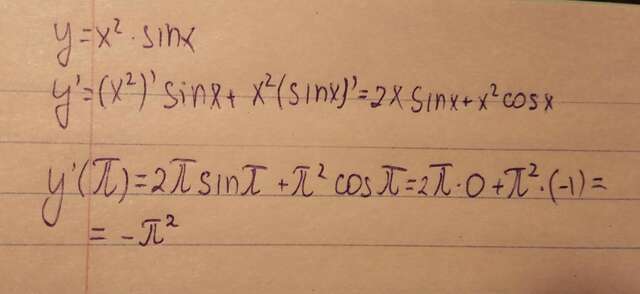 y = x² · sinx
y' = (x²)' sinx + x² (sinx)' = 2x sinx + x² cosx
y'(π) = 2π sinπ + π² cosπ = 2π · 0 + π² · (-1) =
= -π²